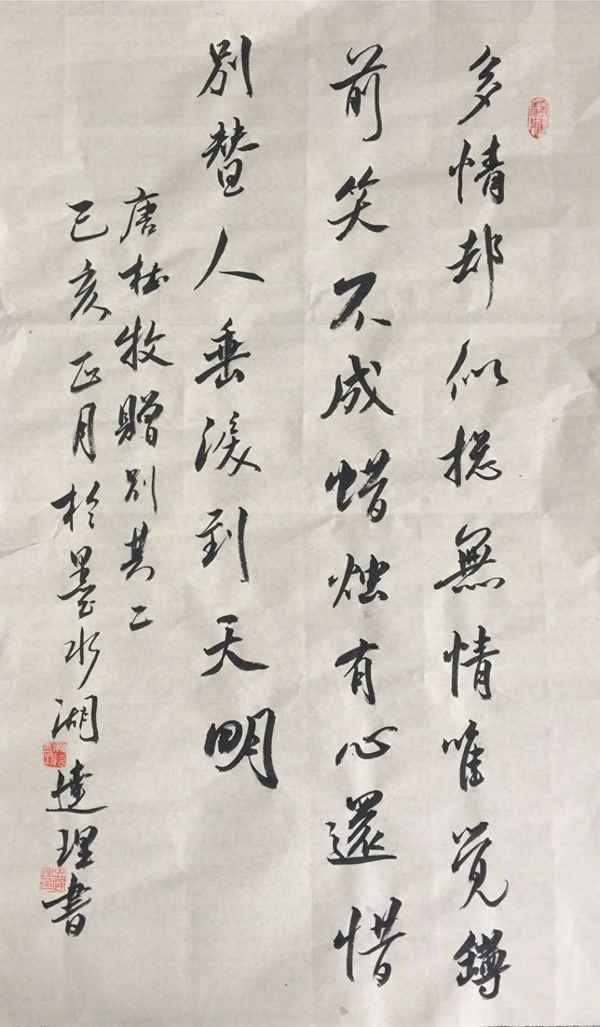 多情却似捴無情唯覚罇
前笑不成蜡烛有心還惜
別替人垂淚到天明
唐杜牧贈别其二
己亥正月於墨水湖達理書